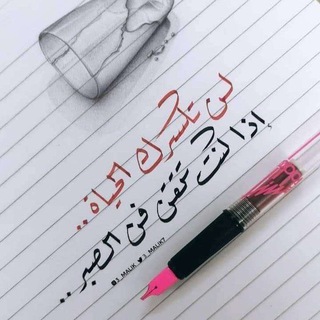 لن تكسرك الحياة..
إذا كنت تتقن فن الصبر..
3 MALIK 3 MALIK7